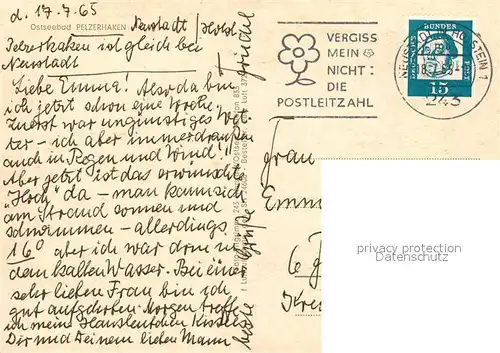 d. 17.7.65
Ostseebad PELZERHAKEN Neustadt / Holst.
Pelzerhaken ist gleich bei
Neustadt
Liebe Emma! Also da bin
ich jetzt schon eine Woche.
Zuerst war ungünstiges Wet-
ter - ich aber immer draußen
auch in Regen und Wind!
Aber jetzt ist das erwünschte
"Hoch" da - man kann sich
am Strand sonnen und
schwimmen - allerdings
16° aber ich war drin in
dem kalten Wasser. Bei einer
sehr lieben Frau bin ich
gut aufgehoben. Morgen treffe
ich meine Hausleute
Dir und Deinem lieben Mann
beste Grüße
VERGISS
MEIN
NICHT:
DIE
POSTLEITZAHL
DEUTSCHE BUNDESPOST
15
NEUSTADT IN HOLSTEIN 1
243
Frau
Emm
6
Kre
privat copyright
privat copyright